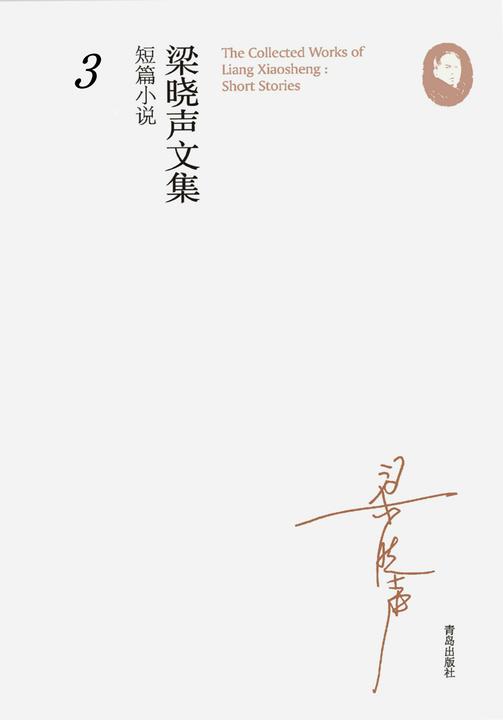 梁晓声文集
短篇小说
3
The Collected Works of
Liang Xiaosheng :
Short Stories
梁晓声
青岛出版社